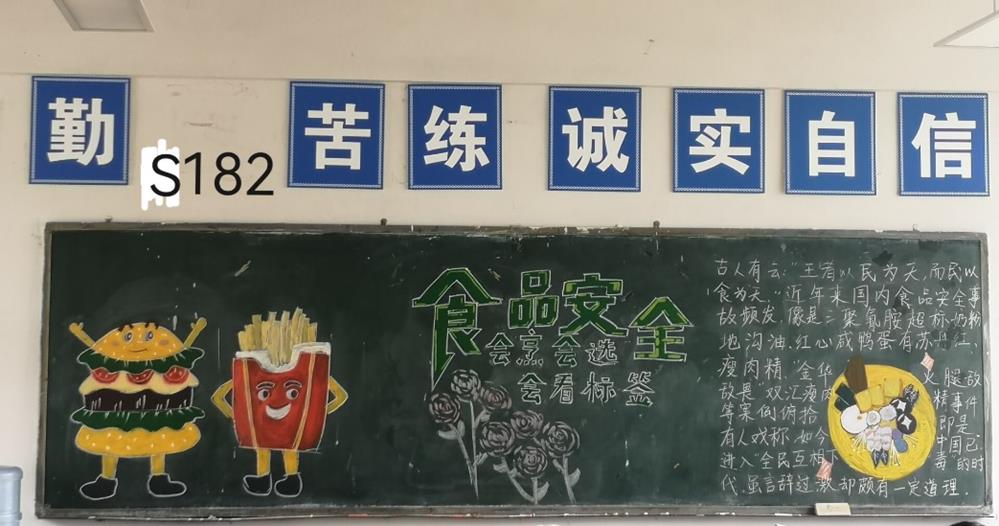 勤 苦 练 诚 实 自 信
S182
食品安全
会烹会选
会看标签
古人有云:"王者以民为天,而民以
食为天。"近年来国内食品安全事
故频发,像是三聚氰胺超标奶粉
地沟油,红心咸鸭蛋有苏丹红,
瘦肉精,"金华 火腿敌
敌畏"双汇瘦肉 精事件
等案例俯拾 即是
有人戏称,如今 中国已
进入"全民互相下 毒"的时
代,虽言辞过激却颇有一定道理.